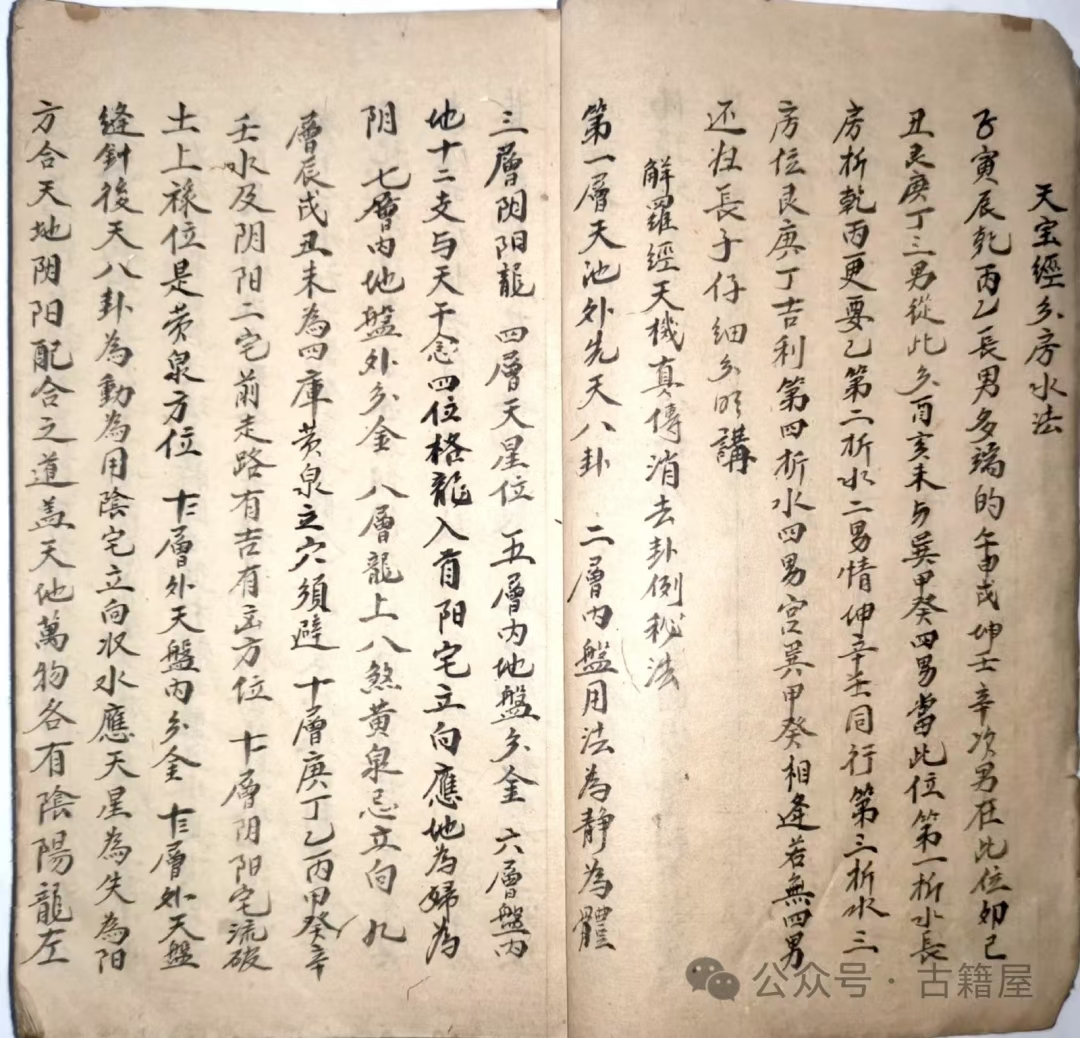 天宝經分房水法
子寅辰乾丙乙長男多璃的午申戌坤士辛次男在此位卯己
丑艮庚丁三男從此分酉亥未与巽甲癸四男當此位第一折水長
房折乾丙更要乙第二折水二男情坤辛壬同行第三折水三
房位艮庚丁吉利第四折水四男宫巽甲癸相逢若無四男
还归長子仔细分明講
解羅經天機真傳消去卦例秘法
第一層天池外先天八卦 二層内盤用法為静為體
三層阴阳龍 四層天星位 五層内地盤分金 六層盤内
地十二支与天干念四位格龍入首阳宅立向應地為婦為
阴 七層内地盤外分金 八層龍上八煞黄泉忌立向 九
層辰戌丑未為四庫黄泉之穴須避 十層庚丁乙丙甲癸辛
壬水及阴阳二宅前走路有吉有凶方位 十一層阴阳宅流破
土上禄位是黄泉方位 十二層外天盤内分金 十三層外天盤
縫針後天八卦為動為用陰宅立向収水應天星為失為阳
方合天地阴阳配合之道盖天地萬物各有陰陽龍左
公众号·古籍屋